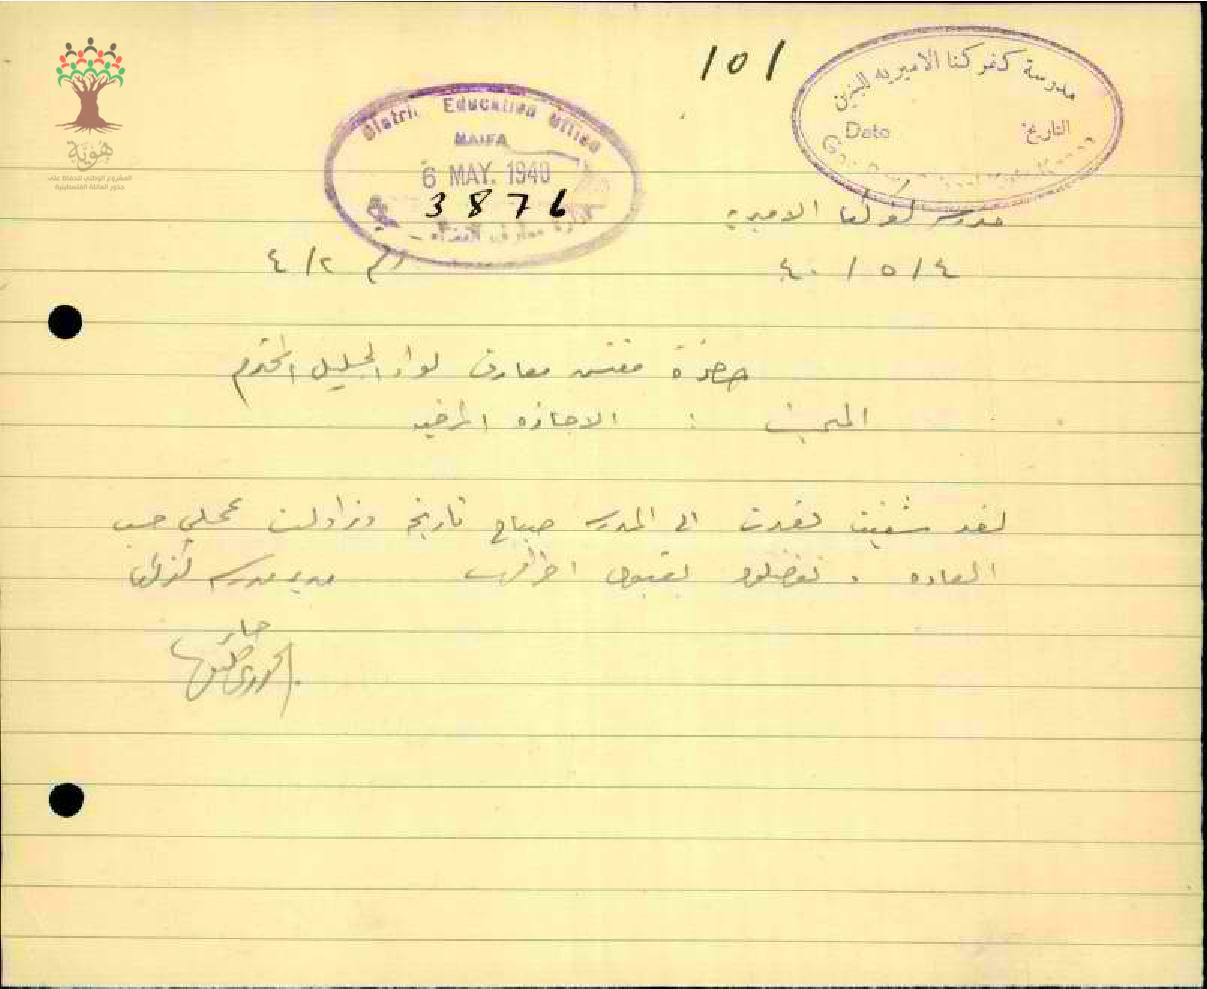 هوية
المشروع الوطني للحفاظ على
جذور العائلة الفلسطينية
101
مدرسة كفركنا الاميرية للبنين
Date التاريخ
District Education Office
HAIFA
6 MAY. 1940
3876
ادارة معارف
مدرسة كفركنا الاميرية
٤ / ٥ / ٤٠
رقم ٤/٢
حضرة مفتش معارف لواء الجليل المحترم
المبحث : الاجازه المرضيه
لقد شفيت فعدت الى المدرسه صباح تاريخه وزاولت عملي حسب
العاده . تفضلوا بقبول احترامي مدير مدرسه كفركنا
الخوري